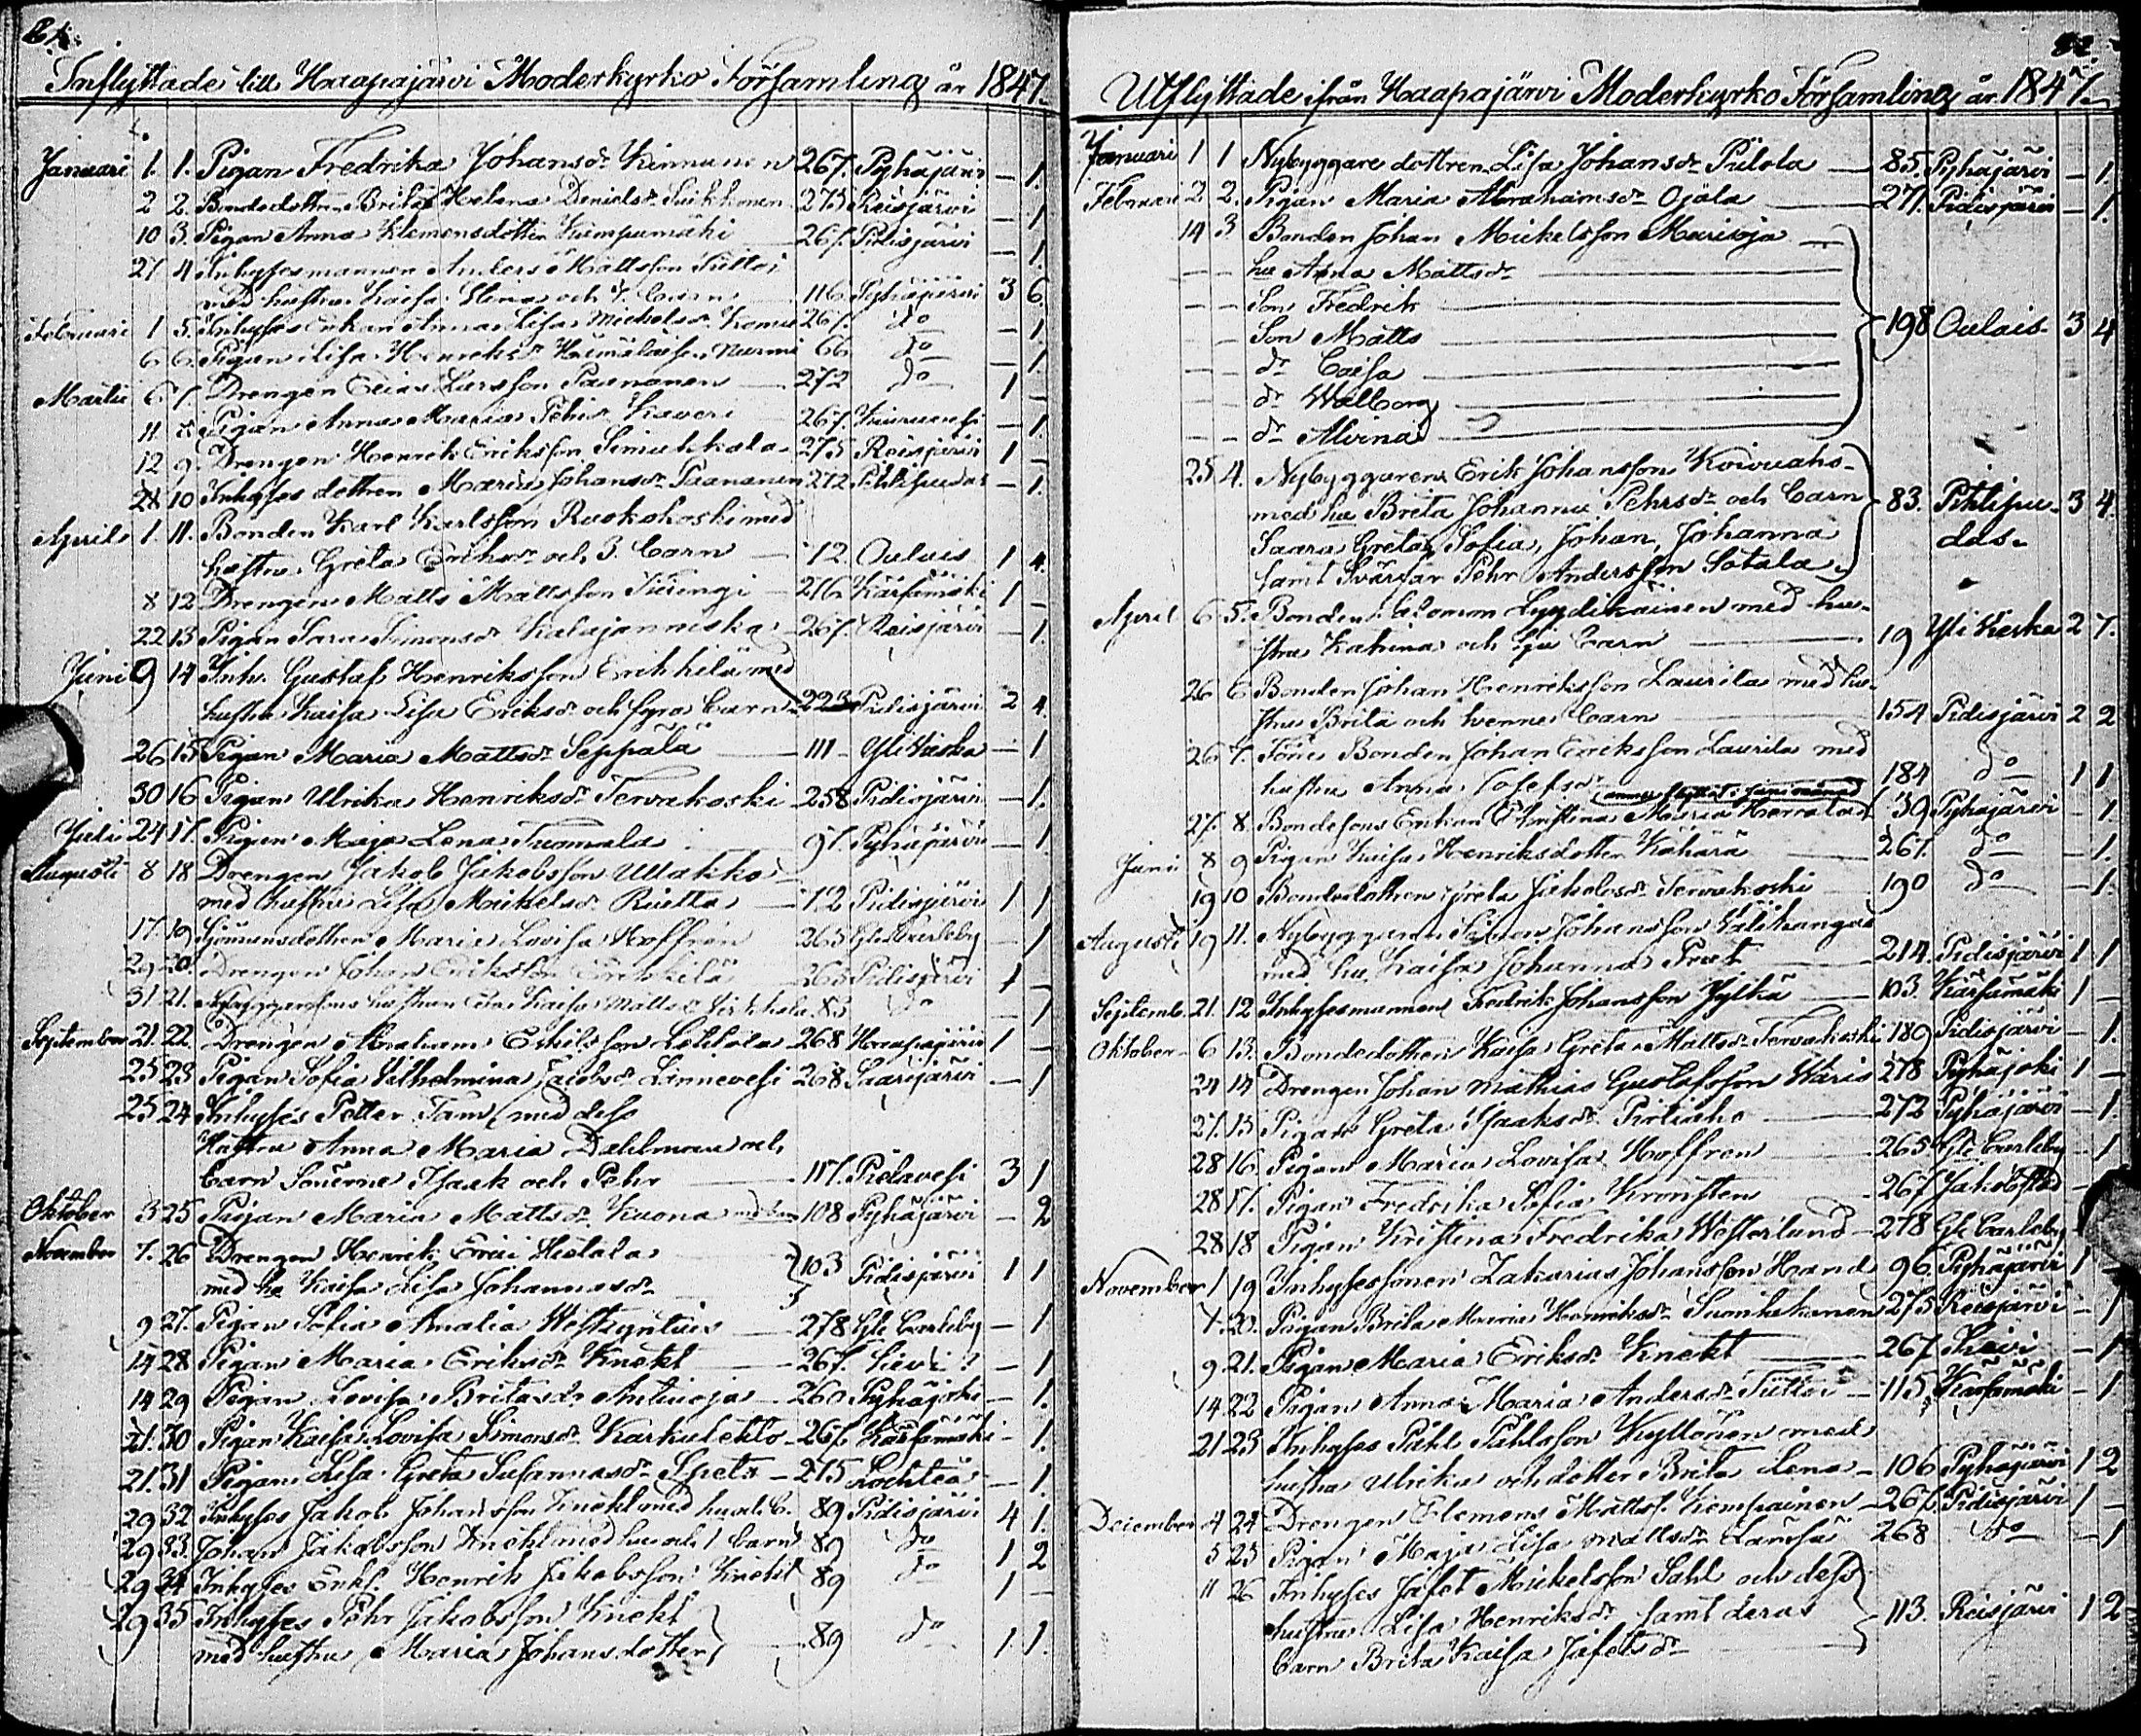 Inflyttade till Haapajärvi Moderkyrko Församling år 1847.
Januari 1. 1. Pigan Fredrika Johansdr Kinnunen 267. Pyhäjärvi — 1.
2 2. Bondedottren Brita Helena Danielsdr 275 Reisjärvi — 1
10 3. Pigan Anna Klemensdotter Kumpumäki 267. Pidisjärvi — 1.
27 4 Inhysesmannen Anders Mattsson Tuttoi
med hustru Kaisa Stina och 7. barn 116 Pyhäjärvi 3 6.
Februari 1 5. Inhyses Enkan Anna Lisa Mickelsdr 267. do — 1.
6 6. Pigan Lisa Henriksdr Nurmi 66 do — 1
Martii 6 7. Drengen Elias Larsson Paananen 272 do 1 —
11 8 Pigan Anna Maria Pehrsdr Kaveri 267. Kiuruvesi — 1.
12 9. Drengen Henrik Eriksson 275 Reisjärvi 1 —
28 10 Inhyses dottren Maria Johansdr Paananen 272 Pihtipudas — 1.
April 1. 11. Bonden Karl Karlsson Ruokokoski med
hustru Greta Eriksdr och 3. barn 12. Oulais 1 4.
8 12 Drengen Matts Mattsson 216 Kärsämäki 1 —
22 13 Pigan Sara Simonsdr Kalajanniska 267. Reisjärvi — 1.
Juni 9 14 Inh. Gustaf Henriksson Erkkilä med
hustru Kaisa Lisa Eriksdr och fyra barn 223 Pidisjärvi 2 4.
26 15 Pigan Maria Mattsdr Seppälä 111 Yli Vieska — 1
30 16 Pigan Ulrika Henriksdr Tervakoski 258 Pidisjärvi — 1.
Juli 24 17. Pigan Maja Lena Tuomala 97. Pyhäjärvi — 1
Augusti 8 18 Drengen Jakob Jakobsson Ullakko
med hustru Lisa Mickelsdr 12 Pidisjärvi 1 1
17. 19 Maria Lovisa Hoffrén 265 Gl. Carleby — 1
29 20. Drengen Johan Eriksson Erkkilä 265 Pidisjärvi 1
31. 21. Kaisa Mattsdr 83 do — 1
September 21. 22. Drengen Abraham Eskilsson 268 Haapajärvi 1 —
25 23 Pigan Sofia Vilhelmina Jacobsdr Linnevesi 268 Saarijärvi — 1
25 24 Inhyses Petter Tam med dess
Hustru Anna Maria Dahlman och
barn Sönerne Isaak och Pehr 117. Pielavesi 3 1
Oktober 3 25 Pigan Maria Mattsdr Kuona 108 Pyhäjärvi — 2
November 7. 26 Drengen Henrik Erici Hietala
med hu Kaisa Lisa Johannsdr 103 Pidisjärvi 1 1
9 27. Pigan Sofia Amalia Westzyntius 278 Gl. Carleby — 1
14 28 Pigan Maria Eriksdr Knekt 267. Sievi — 1
14 29 Pigan Lovisa Britasdr Antinoja 260 Pyhäjoki — 1.
21. 30 Pigan Kaisa Lovisa Simonsdr Karkulehto 267. Kärsämäki — 1.
21. 31 Pigan Lisa Greta Susannasdr 275 Lochteå — 1.
29 32 Inhyses Jakob Johansson Knekt med hu och 89 Pidisjärvi 4 1.
29 33. Johan Jakobsson Knekt med hu och 1 barn 89 do 1 2
29 34 Inhyses Enkl. Henrik Jakobsson Knekt 89 do 1 —
29 35 Inhyses Pehr Jakobsson Knekt
med hustru Maria Johansdotter 89 do 1 1.
82.
Utflyttade ifrån Haapajärvi Moderkyrko Församling år 1847.
Januari 1 1 Nybyggare dottren Lisa Johansdr Pulola 85. Pyhäjärvi — 1.
Februari 2 2. Pigan Maria Abrahamsdr Ojala 27. Pidisjärvi — 1.
14 3 Bonden Johan Mickelsson Marioja
— — hu Anna Mattsdr
— — Son Fredrik
— — Son Matts 198 Oulais 3 4
— — dr Caisa
— — dr Walborg
— — dr Alvina
25 4. Nybyggaren Erik Johansson Koivuaho
med hu Brita Johanna Pehrsdr och barn 83. Pihtipu- 3 4.
Saara Greta, Sofia, Johan, Johanna das.
samt Svärfar Pehr Andersson Sotala
April 6 5. Bonden Salomon Lyydikäinen med hu-
stru Katrina och sju barn 19 Yli Vieska 2 7.
26 6 Bonden Johan Henriksson Laurila med hu-
stru Brita och tvenne barn 154 Pidisjärvi 2 2
26 7. Förre Bonden Johan Eriksson Laurila med
hustru Anna Josefsdr 184 do 1 1
27. 8. Bondesons Enkan Christina Maria 39 Pyhäjärvi — 1
Juni 8 9 Pigan Kaisa Henriksdotter Kähärä 267. do — 1.
19 10 Bondedottren Greta Jakobsdr Tervakoski 190 do — 1.
Augusti 19 11. Nybyggaren Simon Johansson Välikangas
med hu Kaisa Johanna Frat 214. Pidisjärvi 1 1
Septemb. 21. 12 Inhysesmannen Fredrik Johansson Jylkä 103. Kärsämäki 1 —
Oktober 6 13. Bondedottren Kaisa Greta Mattsdr Tervakoski 189 Pidisjärvi — 1.
24 14 Drengen Johan Mathias Gustafsson Wäris 278 Pyhäjoki 1 —
27. 15 Pigan Greta Isaaksdr Pirtiaho 272 Pyhäjärvi — 1.
28 16. Pigan Maria Lovisa Hoffren 265 Gl. Carleby — 1
28 17. Pigan Fredrika Sofia Kronsten 267 Jakobstad —
28 18 Pigan Kristina Fredrika Westerlund 278 Gl. Carleby
November 1 19 Inhysessonen Zakarias Johansson Hand 96. Pyhäjärvi 1 —
7. 20. Pigan Brita Maria Henriksdr 275 Reisjärvi — 1
9 21. Pigan Maria Eriksdr Knekt 267 — 1
14 22 Pigan Anna Maria Andersdr Tuttoi 115 Kärsämäki — 1
21 23 Inhyses Påhl Påhlsson Kyllönen med
hustru Ulrika och dotter Brita Lena 106 Pyhäjärvi 1 2
December 4 24 Drengen Clemens Mattss. Kemppainen 267. Pidisjärvi 1 —
5 25 Pigan Maja Lisa Mattsdr 268 do — 1
11 26 Inhyses Jafet Mickelsson Sahl och dess
hustru Lisa Henriksdr samt deras 113. Reisjärvi 1 2
barn Brita Kaisa Jafetsdr